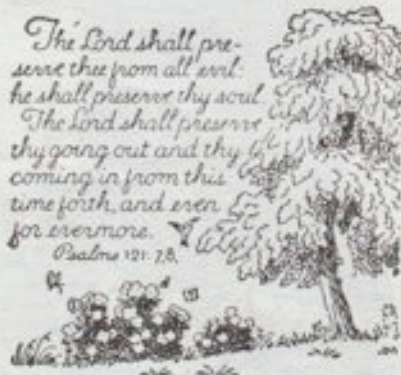 The Lord shall pre-
serve thee from all evil:
he shall preserve thy soul.
The Lord shall preserve
thy going out and thy
coming in from this
time forth, and even
for evermore.
Psalms 121:7,8,